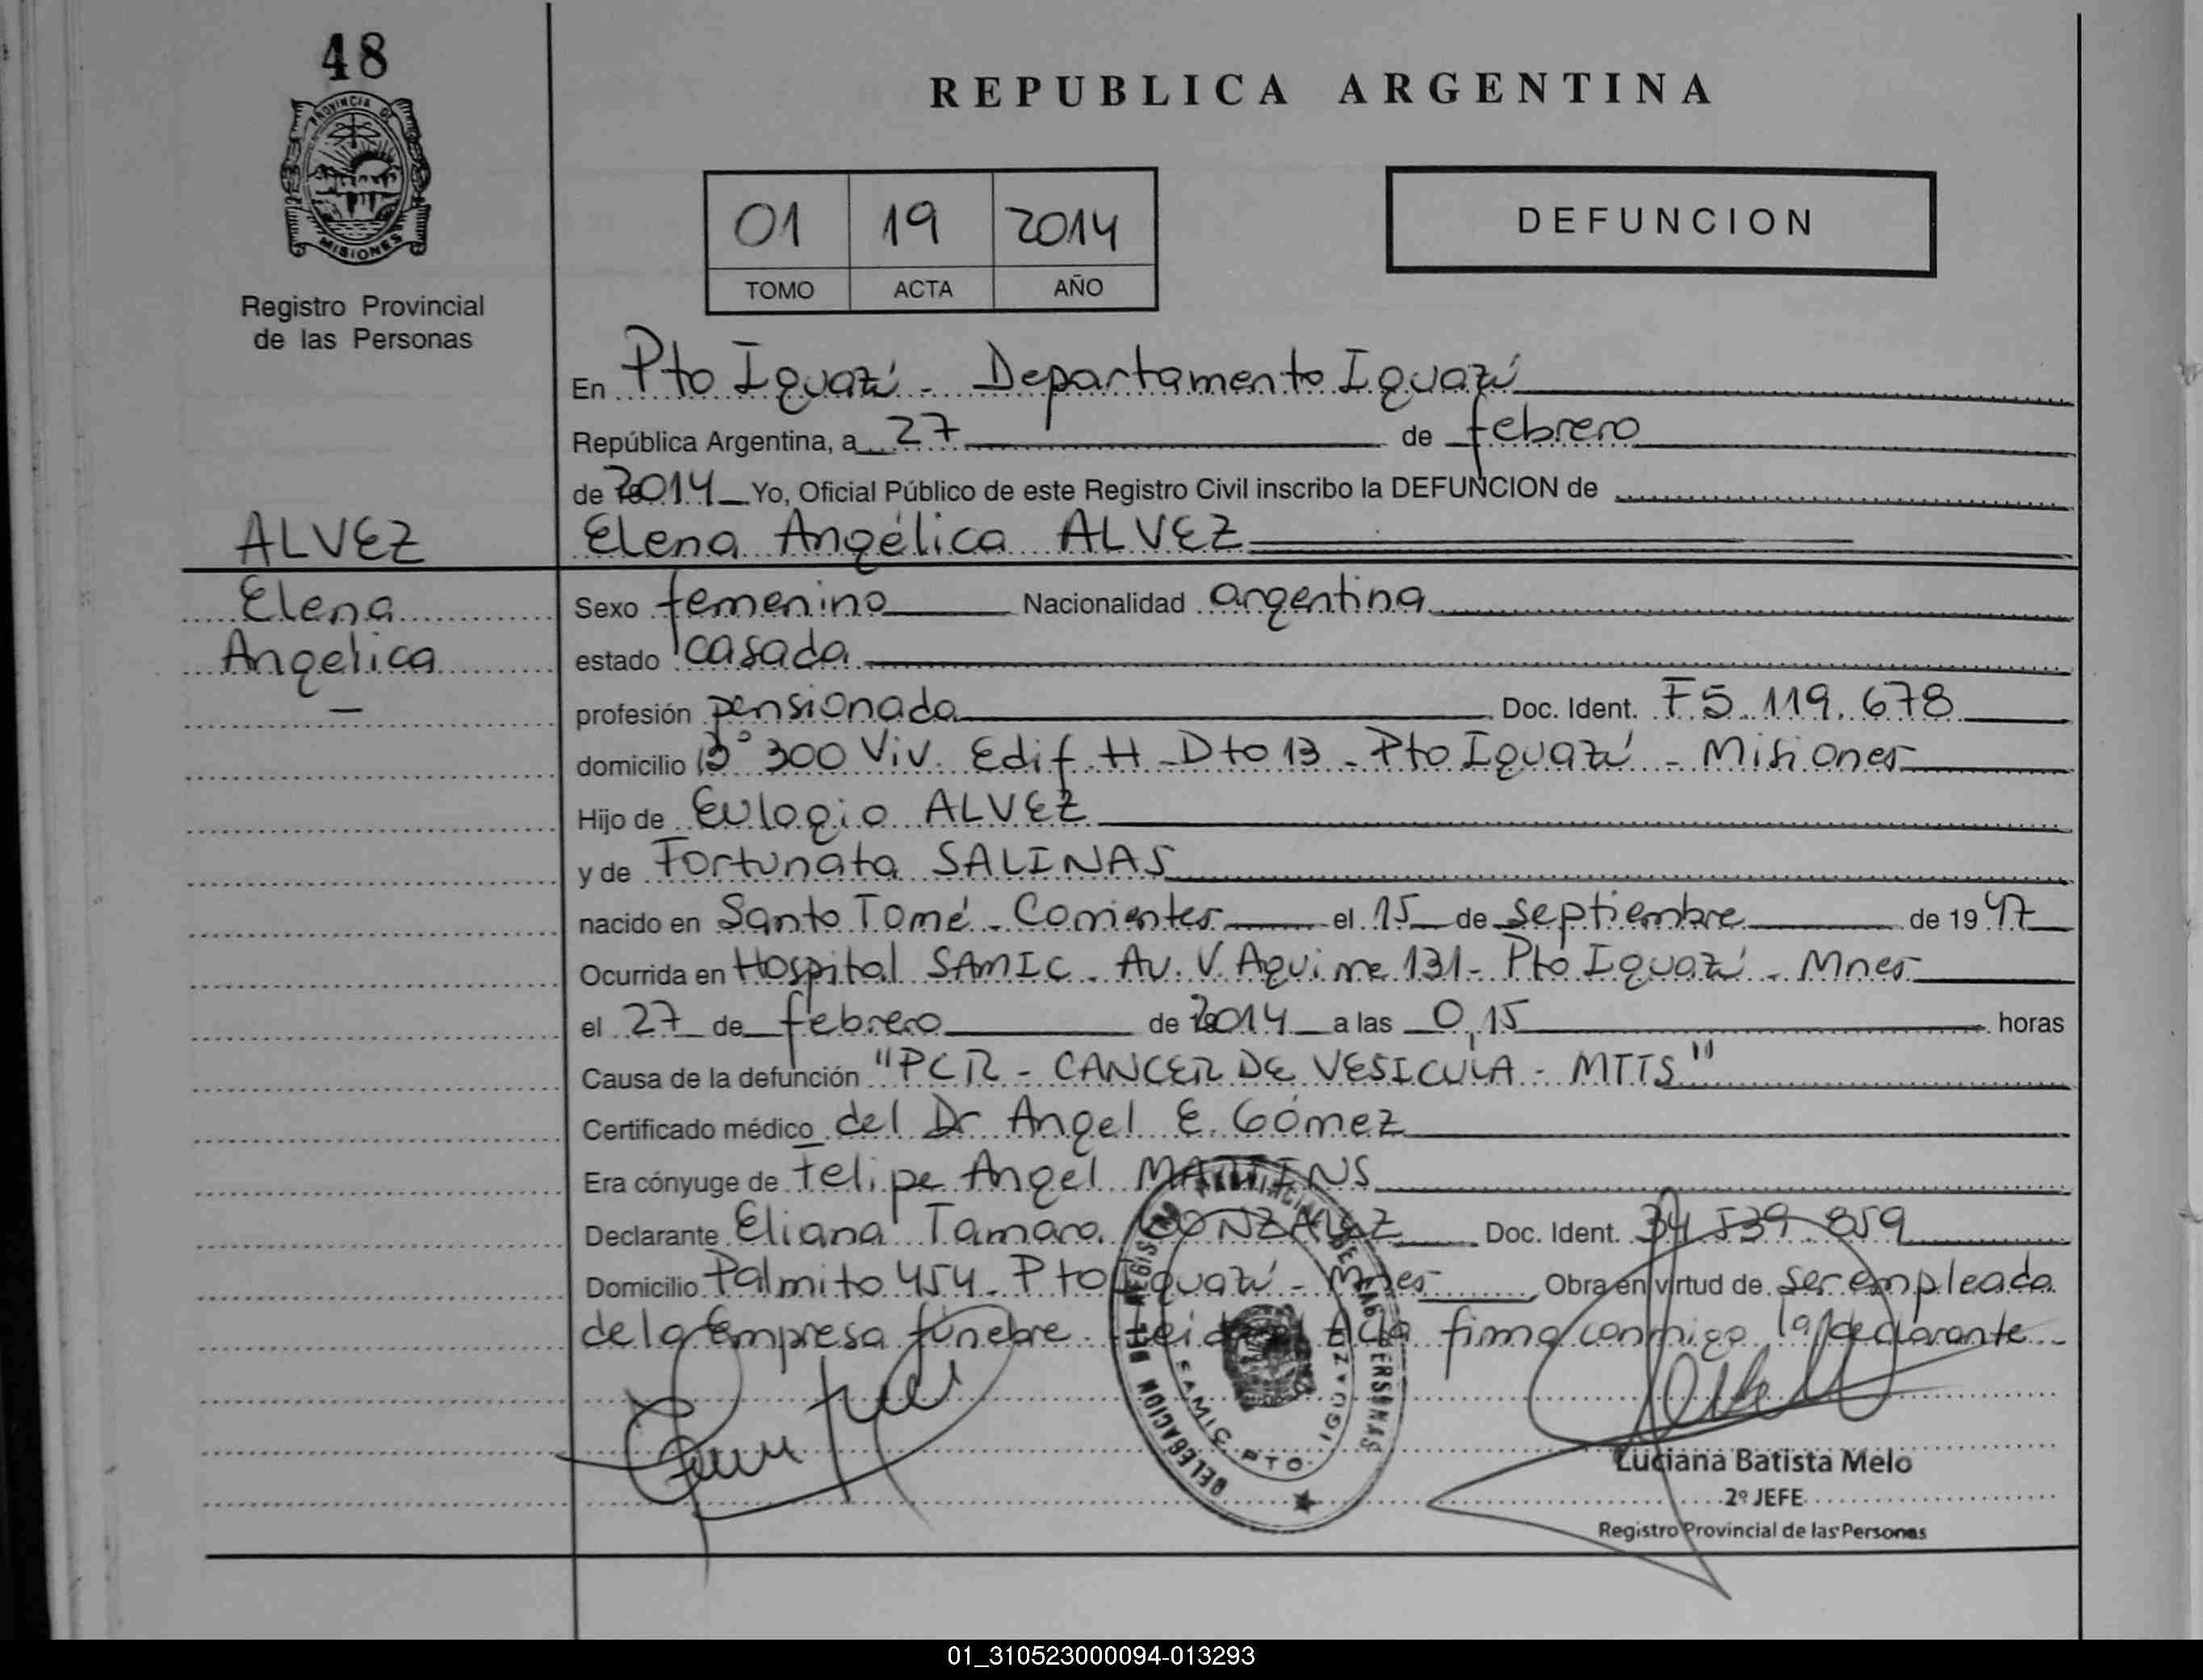 48
PROVINCIA DE
MISIONES
Registro Provincial
de las Personas
REPUBLICA ARGENTINA
01 19 2014
TOMO ACTA AÑO
DEFUNCION
En Pto Iguazú - Departamento Iguazú
República Argentina, a 27 de febrero
de 2014 Yo, Oficial Público de este Registro Civil inscribo la DEFUNCION de
ALVEZ
Elena
Angelica
Elena Angélica ALVEZ
Sexo femenino Nacionalidad argentina
estado casada
profesión pensionada Doc. Ident. F5.119.678
domicilio B° 300 Viv. Edif H - Dto 13 - Pto Iguazú - Misiones
Hijo de Eulogio ALVEZ
y de Fortunata SALINAS
nacido en Santo Tomé - Corrientes el 15 de septiembre de 1947
Ocurrida en Hospital SAMIC - Av. V. Aguirre 131 - Pto Iguazú - Mnes
el 27 de febrero de 2014 a las 0,15 horas
Causa de la defunción "PCR - CANCER DE VESICULA - MTTS"
Certificado médico del Dr Angel E. Gómez
Era cónyuge de Felipe Angel MARTINS
Declarante Eliana Tamara GONZALEZ Doc. Ident. 34.539.859
Domicilio Palmito 454 - Pto Iguazú - Mnes Obra en virtud de ser empleada
de la empresa fúnebre. Leida el Acta firma conmigo la declarante
DELEGACION DEL REGISTRO PROVINCIAL DE LAS PERSONAS
SAMIC PTO. IGUAZU
Luciana Batista Melo
2º JEFE
Registro Provincial de las Personas
01_310523000094-013293